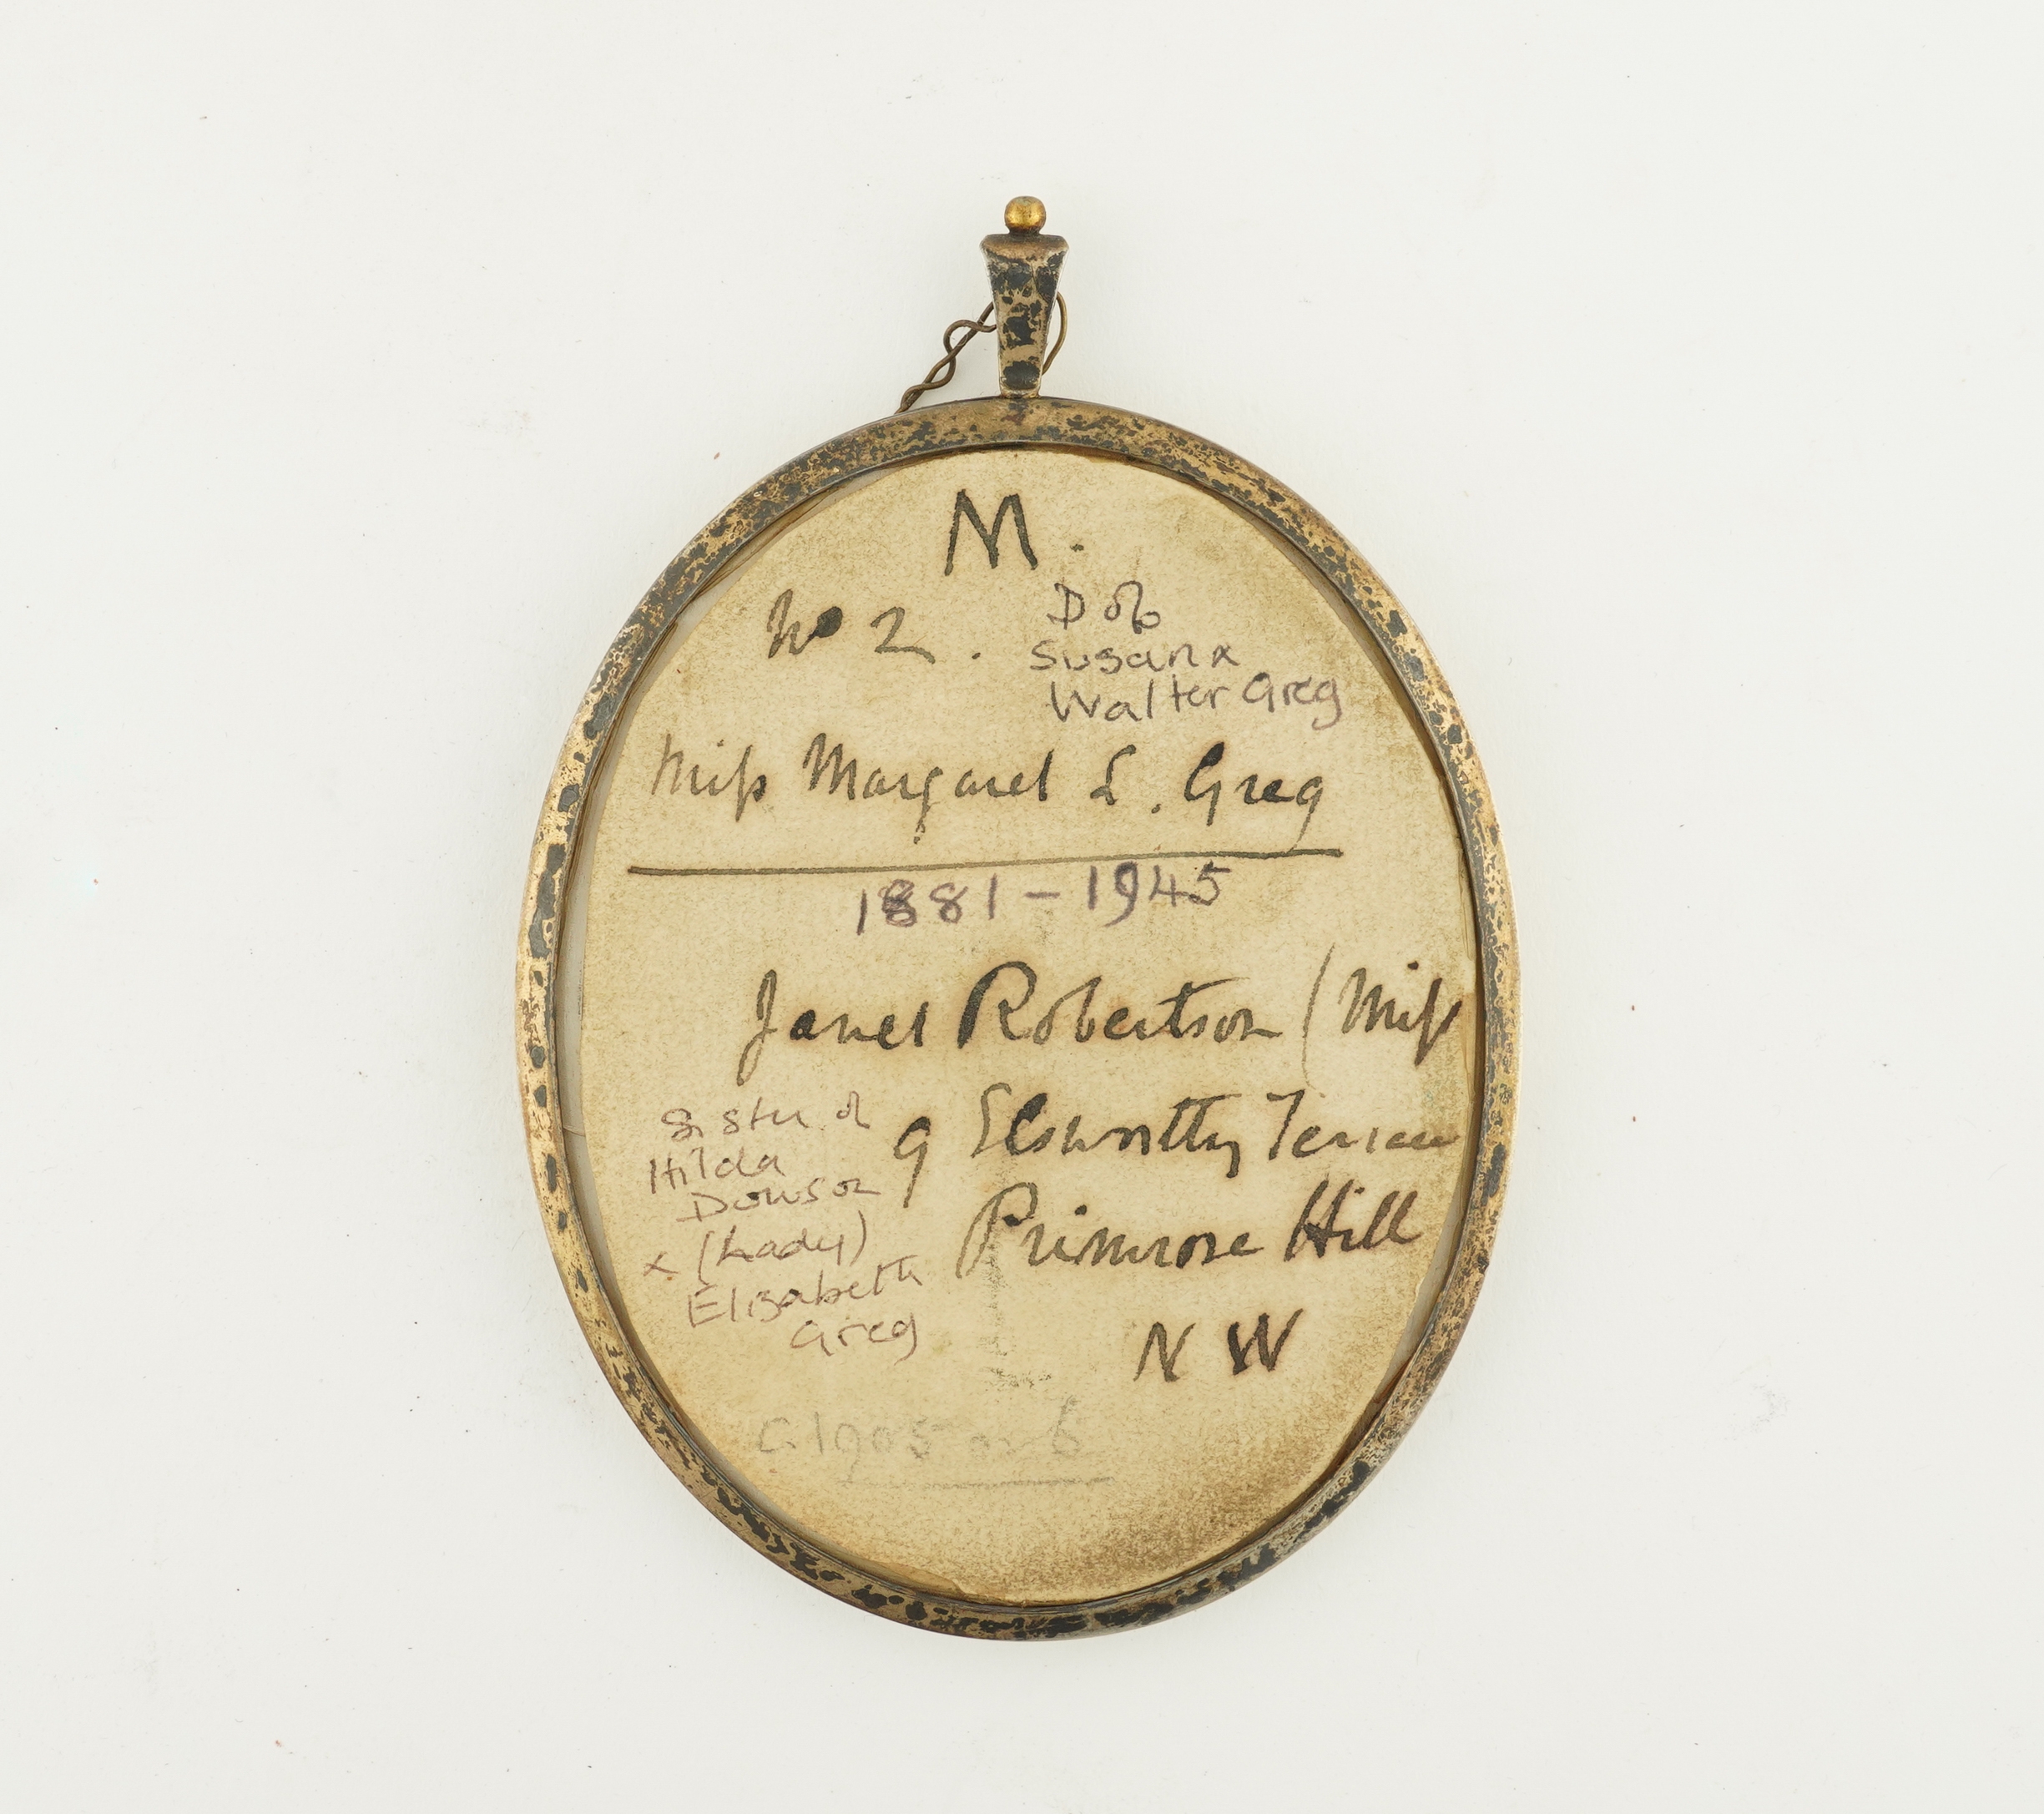 M.
No 2.
D of
Susan &
Walter Greg
Miss Margaret L. Greg
1881 - 1945
Janet Robertson (Miss
9 Elsworthy Terrace
Primrose Hill
N W
Sister of
Hilda
Dowson
& (Lady)
Elizabeth
Greg
C. 1905 or 6